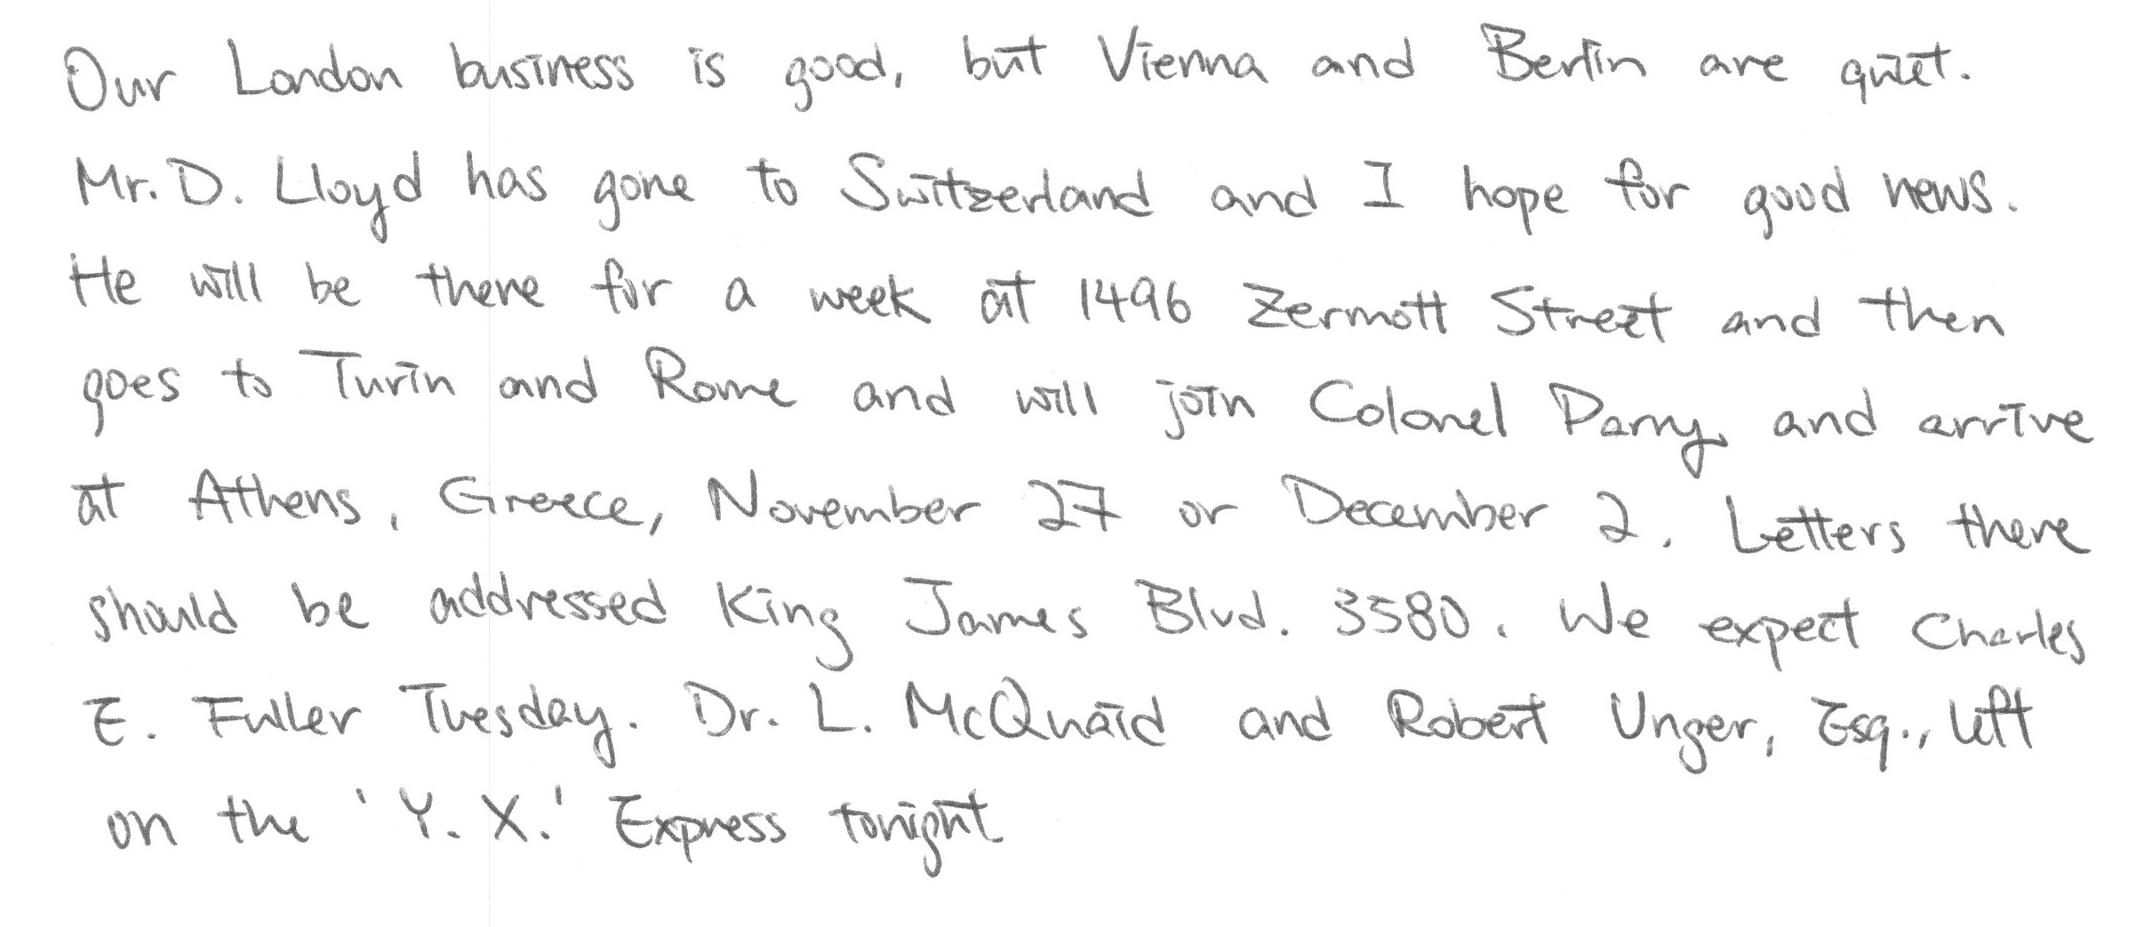 Our London business is good, but Vienna and Berlin are quiet.
Mr. D. Lloyd has gone to Switzerland and I hope for good news.
He will be there for a week at 1496 Zermott Street and then
goes to Turin and Rome and will join Colonel Parry, and arrive
at Athens, Greece, November 27 or December 2. Letters there
should be addressed King James Blvd. 3580. We expect Charles
E. Fuller Tuesday. Dr. L. McQuaid and Robert Unger, Esq., left
on the 'Y. X.' Express tonight